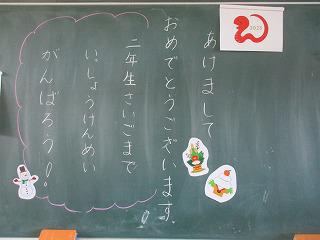 あけまして
おめでとうございます。
二年生さいごまで
いっしょうけんめい
がんばろう!
2025